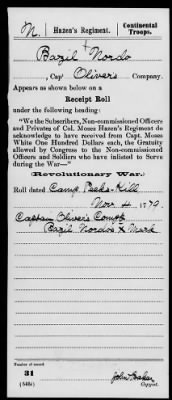 N.
Hazen's Regiment.
Continental
Troops.
Bazil Nordo
, Cap' Oliver's Company.
Appears as shown below on a
Receipt Roll
under the following heading:
"We the Subscribers, Non-commissioned Officers
and Privates of Col. Moses Hazen's Regiment do
acknowledge to have received from Capt. Moses
White One Hundred Dollars each, the Gratuity
allowed by Congress to the Non-commissioned
Officers and Soldiers who have inlisted to Serve
during the War—"
(Revolutionary War.)
Roll dated Camp Peeks-Kill
Nov. 4, 1779.
Captain Oliver's Compy
Bazil Nordo's X Mark
Number of record:
31
(548c)
Copyist.